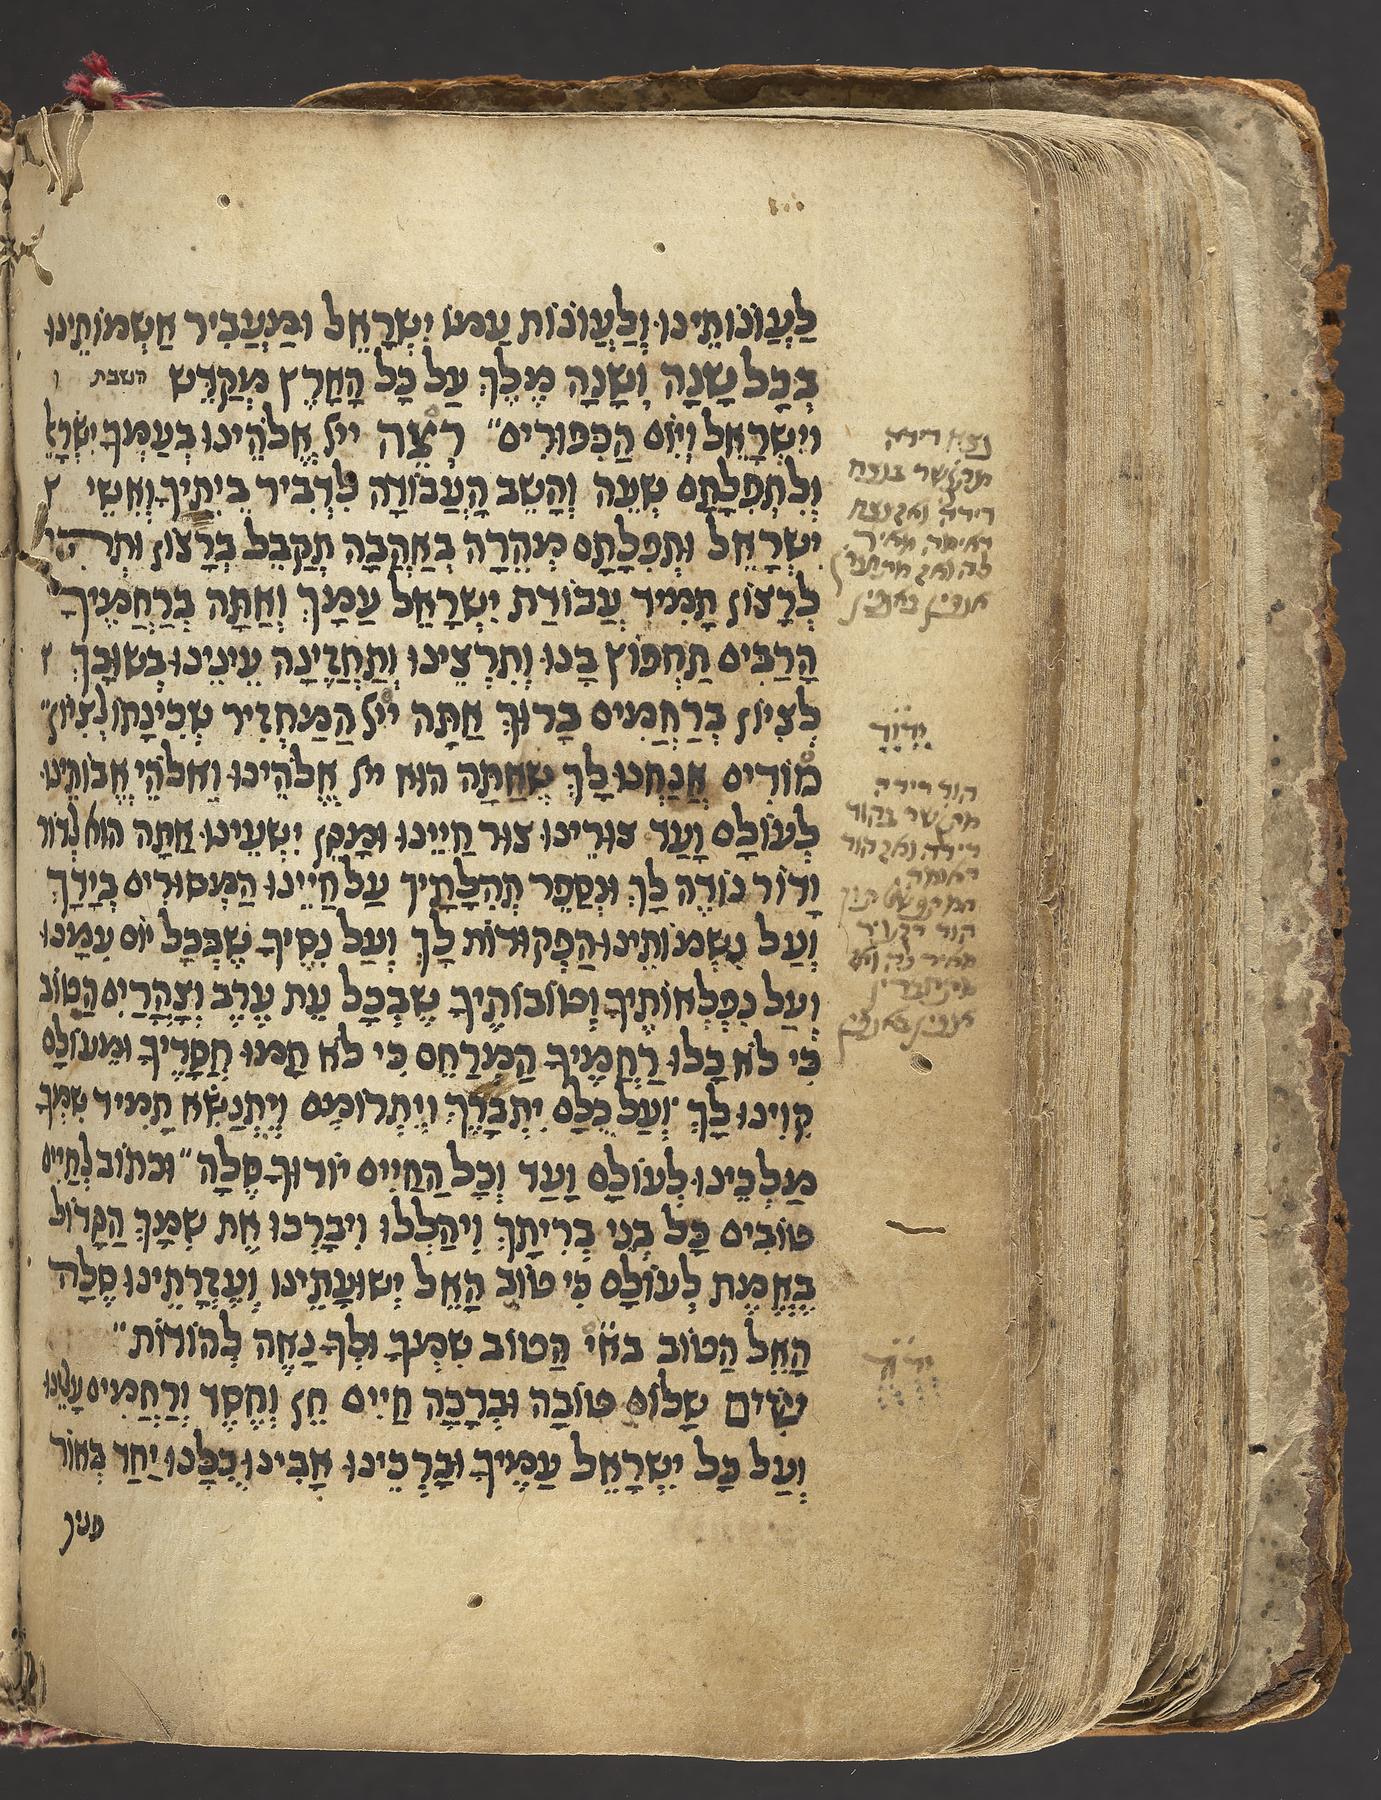 לַעֲוֹנוֹתֵינוּ וְלַעֲוֹנוֹת עַמּוֹ יִשְׂרָאֵל וּמַעֲבִיר אַשְׁמוֹתֵינוּ
בְּכָל שָׁנָה וְשָׁנָה מֶלֶךְ עַל כָּל הָאָרֶץ מְקַדֵּשׁ השבת ו
וְיִשְׂרָאֵל וְיוֹם הַכִּפּוּרִים״ רְצֵה ייל אֱלֹהֵינוּ בְּעַמְּךָ יִשְׂרָאֵ
וְלִתְפִלָּתָם שְׁעֵה וְהָשֵׁב הָעֲבוֹדָה לִדְבִיר בֵּיתֶיךָ וְאִשֵּׁי
יִשְׂרָאֵל וּתְפִלָּתָם מְהֵרָה בְּאַהֲבָה תְקַבֵּל בְּרָצוֹן וּתְהִי
לְרָצוֹן תָּמִיד עֲבוֹדַת יִשְׂרָאֵל עַמָּךְ וְאַתָּה בְּרַחֲמֶיךָ
הָרַבִּים תַּחְפּוֹץ בָּנוּ וְתִרְצֵינוּ וְתֶחֱזֶינָה עֵינֵינוּ בְּשׁוּבָךְ
לְצִיּוֹן בְּרַחֲמִים בָּרוּךְ אַתָּה ייל הַמַּחֲזִיר שְׁכִינָתוֹ לְצִיּוֹן״
מוֹדִים אֲנַחְנוּ לָךְ שֶׁאַתָּה הוּא ייל אֱלֹהֵינוּ וֵאלֹהֵי אֲבוֹתֵינוּ
לְעוֹלָם וָעֶד צוּרֵינוּ צוּר חַיֵּינוּ וּמָגֵן יִשְׁעֵינוּ אַתָּה הוּא לְדוֹר
וָדוֹר נוֹדֶה לָךְ וּנְסַפֵּר תְּהִלָּתָיךְ עַל חַיֵּינוּ הַמְּסוּרִים בְּיָדָךְ
וְעַל נִשְׁמוֹתֵינוּ הַפְּקוּדוֹת לָךְ וְעַל נִסֶּיךָ שֶׁבְּכָל יוֹם עִמָּנוּ
וְעַל נִפְלְאוֹתֶיךָ וְטוֹבוֹתֶיךָ שֶׁבְּכָל עֵת עֶרֶב וְצָהֳרַיִם הַטּוֹב
כִּי לֹא כָלוּ רַחֲמֶיךָ הַמְרַחֵם כִּי לֹא תַמּוּ חֲסָדֶיךָ וּמֵעוֹלָם
קִוִּינוּ לָךְ וְעַל כֻּלָּם יִתְבָּרֵךְ וְיִתְרוֹמֵם וְיִתְנַשֵּׂא תָמִיד שִׁמְךָ
מַלְכֵּינוּ לְעוֹלָם וָעֶד וְכָל הַחַיִּים יוֹדוּךָ סֶלָה״ וּכְתוֹב לְחַיִּים
טוֹבִים כָּל בְּנֵי בְרִיתָךְ וִיהַלְלוּ וִיבָרְכוּ אֶת שִׁמָךְ הַגָּדוֹל
בֶּאֱמֶת לְעוֹלָם כִּי טוֹב הָאֵל יְשׁוּעָתֵינוּ וְעֶזְרָתֵינוּ סֶלָה
הָאֵל הַטּוֹב באיי הַטּוֹב שִׁמְךָ וּלְךָ נָאֶה לְהוֹדוֹת״
שִׂים שָׁלוֹם טוֹבָה וּבְרָכָה חַיִּים חֵן וְחֶסֶד וְרַחֲמִים עָלֵינוּ
וְעַל כָּל יִשְׂרָאֵל עַמֶּיךָ וּבָרְכֵינוּ אָבִינוּ כֻּלָּנוּ יַחַד בְּאוֹר
פניך